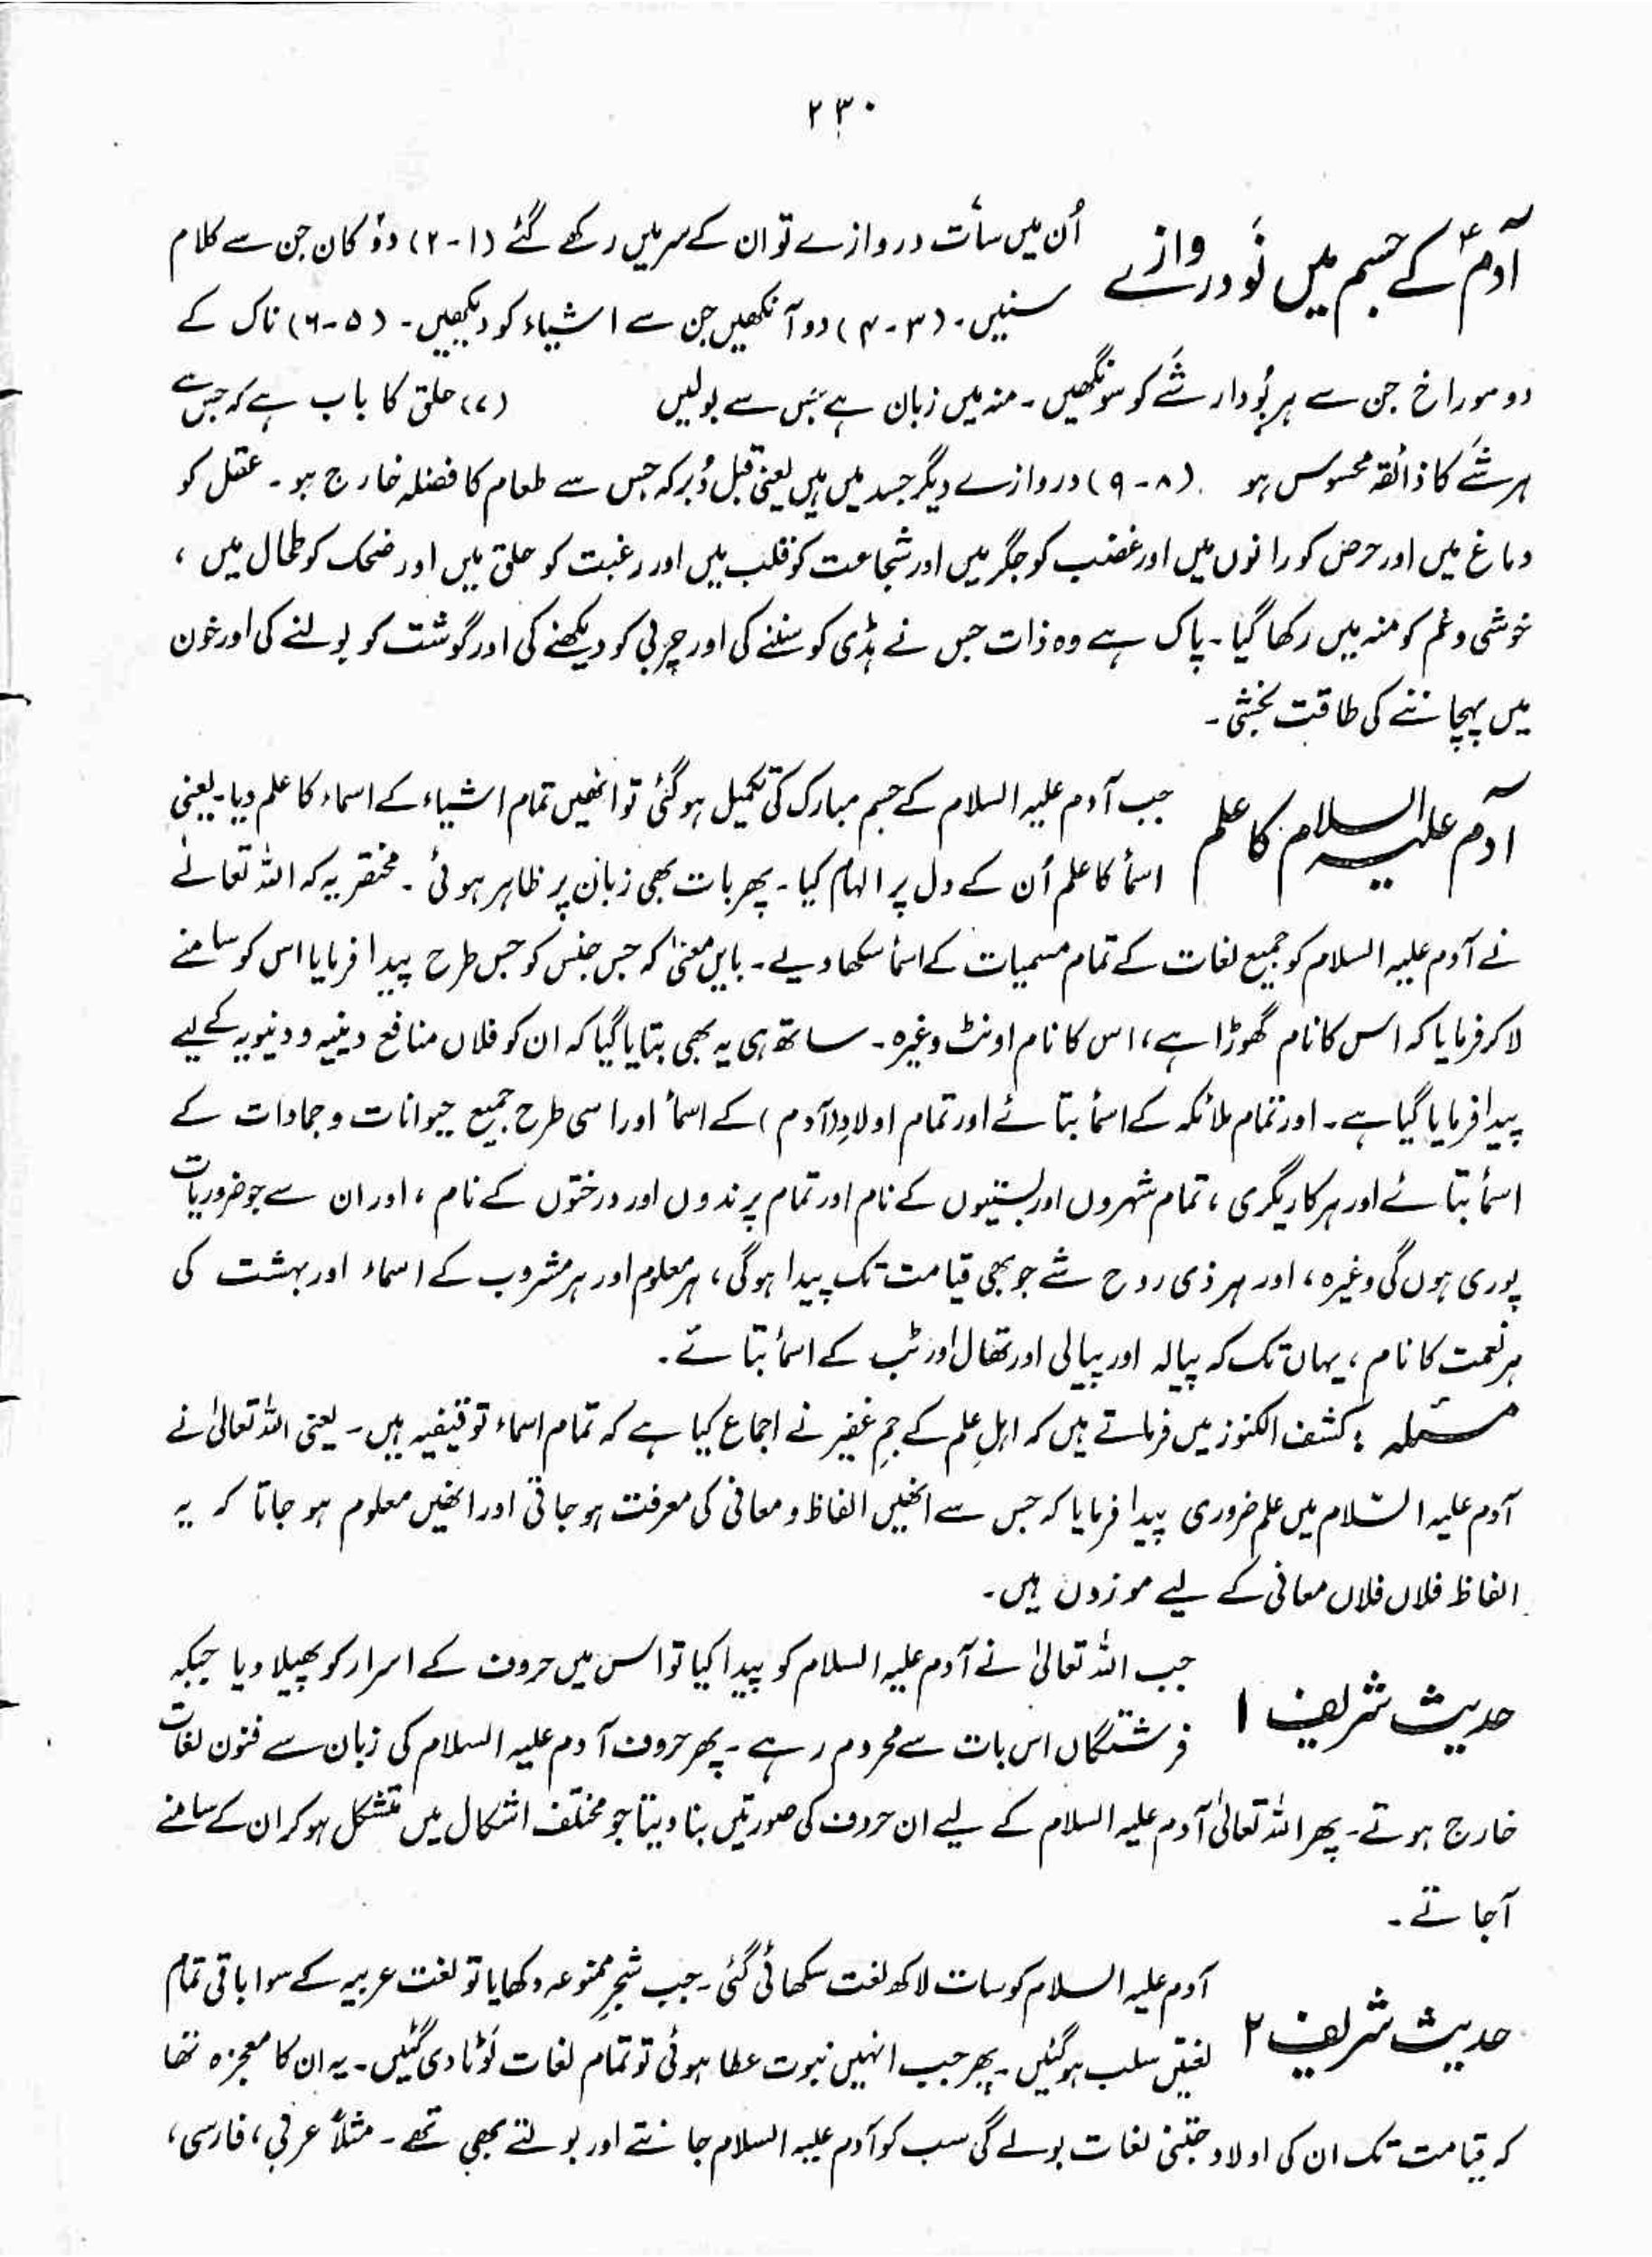 ۲۳۰
آدمؑ کے جسم میں نَو دروازے اُن میں سات دروازے تو ان کے سر میں رکھے گئے (۱-۲) دو کان جن سے کلام
سنیں۔ (۳-۴) دو آنکھیں جن سے اشیاء کو دیکھیں۔ (۵-۶) ناک کے
دو سوراخ جن سے ہر بُودار شَے کو سونگھیں۔ منہ میں زبان ہے جس سے بولیں (۷) حلق کا باب ہے کہ جس سے
ہر شَے کا ذائقہ محسوس ہو (۸-۹) دروازے دیگر جسد میں ہیں یعنی قبل دُبر کہ جس سے طعام کا فضلہ خارج ہو۔ عقل کو
دماغ میں اور حرص کو رانوں میں اور غضب کو جگر میں اور شجاعت کو قلب میں اور رغبت کو حلق میں اور ضحک کو طحال میں،
خوشی و غم کو منہ میں رکھا گیا۔ پاک ہے وہ ذات جس نے ہڈی کو سننے کی اور چربی کو دیکھنے کی اور گوشت کو بولنے کی اور خون
میں پہچاننے کی طاقت بخشی۔
آدم علیہ السلام کا علم جب آدم علیہ السلام کے جسم مبارک کی تکمیل ہوگئی تو انھیں تمام اشیاء کے اسماء کا علم دیا۔ یعنی
اسمأ کا علم اُن کے دل پر الہام کیا۔ پھر بات بھی زبان پر ظاہر ہوئی۔ مختصر یہ کہ اللہ تعالےٰ
نے آدم علیہ السلام کو جمیع لغات کے تمام مسمیات کے اسمأ سکھا دیے۔ بایں معنیٰ کہ جس جنس کو جس طرح پیدا فرمایا اس کو سامنے
لاکر فرمایا کہ اس کا نام گھوڑا ہے، اس کا نام اونٹ وغیرہ۔ ساتھ ہی یہ بھی بتایا گیا کہ ان کو فلاں منافع دینیہ و دنیویہ کے لیے
پیدا فرمایا گیا ہے۔ اور تمام ملائکہ کے اسمأ بتائے اور تمام اولادِ (آدم) کے اسمأ اور اسی طرح جمیع حیوانات و جمادات کے
اسمأ بتائے اور ہر کاریگری، تمام شہروں اور بستیوں کے نام اور تمام پرندوں اور درختوں کے نام، اور ان سے جو ضروریات
پوری ہوں گی وغیرہ، اور ہر ذی روح شے جو بھی قیامت تک پیدا ہوگی، ہر معلوم اور ہر مشروب کے اسماء اور بہشت کی
ہر نعمت کا نام، یہاں تک کہ پیالہ اور پیالی اور تھال اور ٹب کے اسمأ بتائے۔
مسئلہ : کشف الکنوز میں فرماتے ہیں کہ اہلِ علم کے جمِ غفیر نے اجماع کیا ہے کہ تمام اسماء توقیفیہ ہیں۔ یعنی اللہ تعالیٰ نے
آدم علیہ السّلام میں علم ضروری پیدا فرمایا کہ جس سے انھیں الفاظ و معانی کی معرفت ہو جاتی اور انھیں معلوم ہو جاتا کہ یہ
الفاظ فلاں فلاں معانی کے لیے موزوں ہیں۔
حدیث شریف ۱ جب اللہ تعالیٰ نے آدم علیہ السلام کو پیدا کیا تو اس میں حروف کے اسرار کو پھیلا دیا جبکہ
فرشتگاں اس بات سے محروم رہے۔ پھر حروف آدم علیہ السلام کی زبان سے فنون لغات
خارج ہوتے۔ پھر اللہ تعالیٰ آدم علیہ السلام کے لیے ان حروف کی صورتیں بنا دیتا جو مختلف اشکال میں متشکل ہو کر ان کے سامنے
آجاتے۔
حدیث شریف ۲ آدم علیہ السلام کو سات لاکھ لغت سکھائی گئی۔ جب شجرِ ممنوعہ دکھایا تو لغت عربیہ کے سوا باقی تمام
لغتیں سلب ہوگئیں۔ پھر جب انہیں نبوت عطا ہوئی تو تمام لغات لَوٹا دی گئیں۔ یہ ان کا معجزہ تھا
کہ قیامت تک ان کی اولاد جتنی لغات بولے گی سب کو آدم علیہ السلام جانتے اور بولتے بھی تھے۔ مثلاً عربی، فارسی،